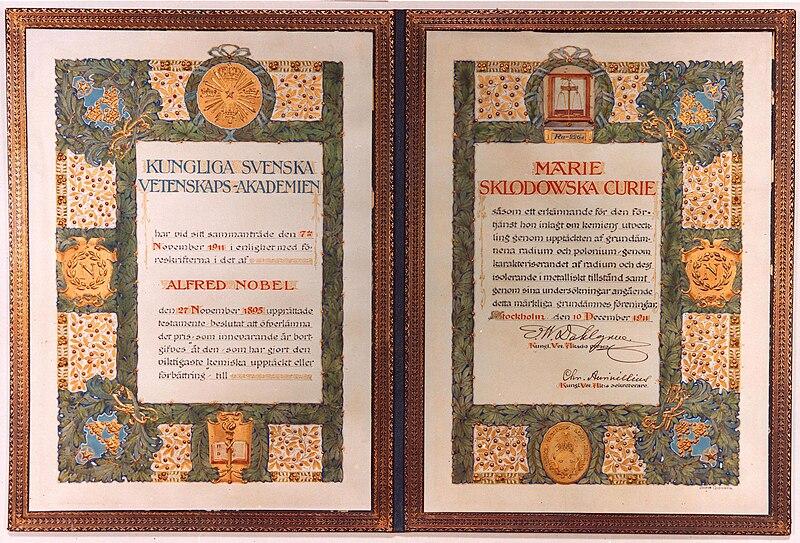 KUNGLIGA SVENSKA
VETENSKAPS-AKADEMIEN
har vid sitt sammanträde den 7de
November 1911 i enlighet med fö-
reskrifterna i det af
ALFRED NOBEL
den 27 November 1895 upprättade
testamente beslutat att öfverlämna
det pris som innevarande år bort-
gifves åt den som har gjort den
viktigaste kemiska upptäckt eller
förbättring till
N
MARIE
SKLODOWSKA CURIE
såsom ett erkännande för den för-
tjänst hon inlagt om kemiens utveck-
ling genom upptäckten af grundäm-
nena radium och polonium genom
karakteriserandet af radium och dess
isolerande i metalliskt tillstånd samt
genom sina undersökningar angående
detta märkliga grundämnes föreningar.
Stockholm den 10 December 1911
Kungl. Vet. Akads
Chr. Aurivillius
Kungl. Vet. Akads sekreterare.
N